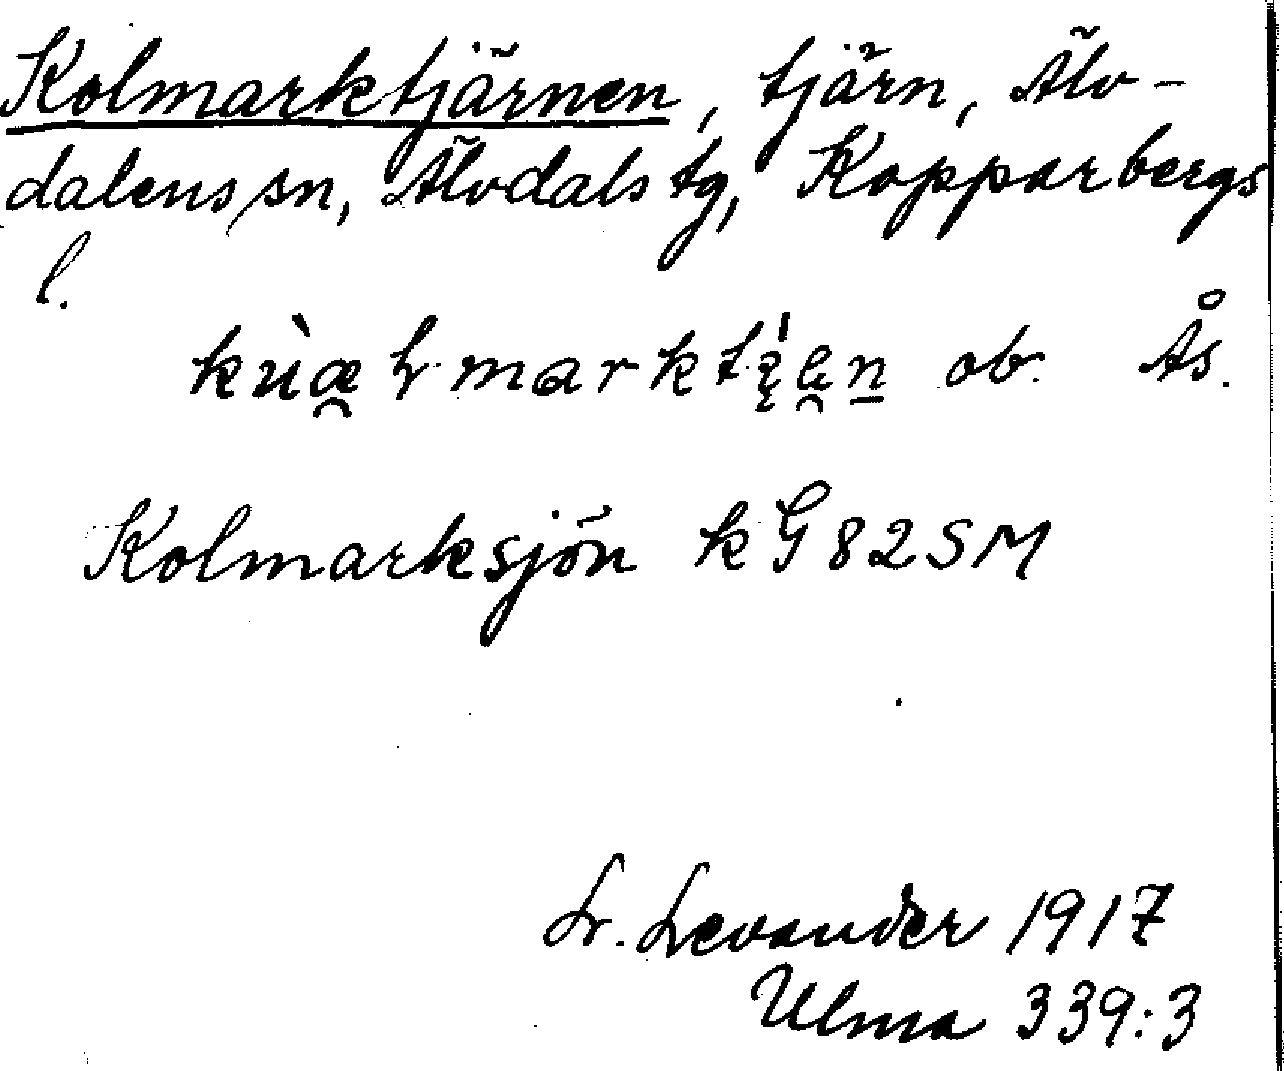 Kolmarktjärnen, tjärn, Älv-
dalens sn, Älvdals tg, Kopparbergs
l.
ob. Ås.
Kolmarksjön kG 82 SM
L. Levander 1917
Ulma 339:3